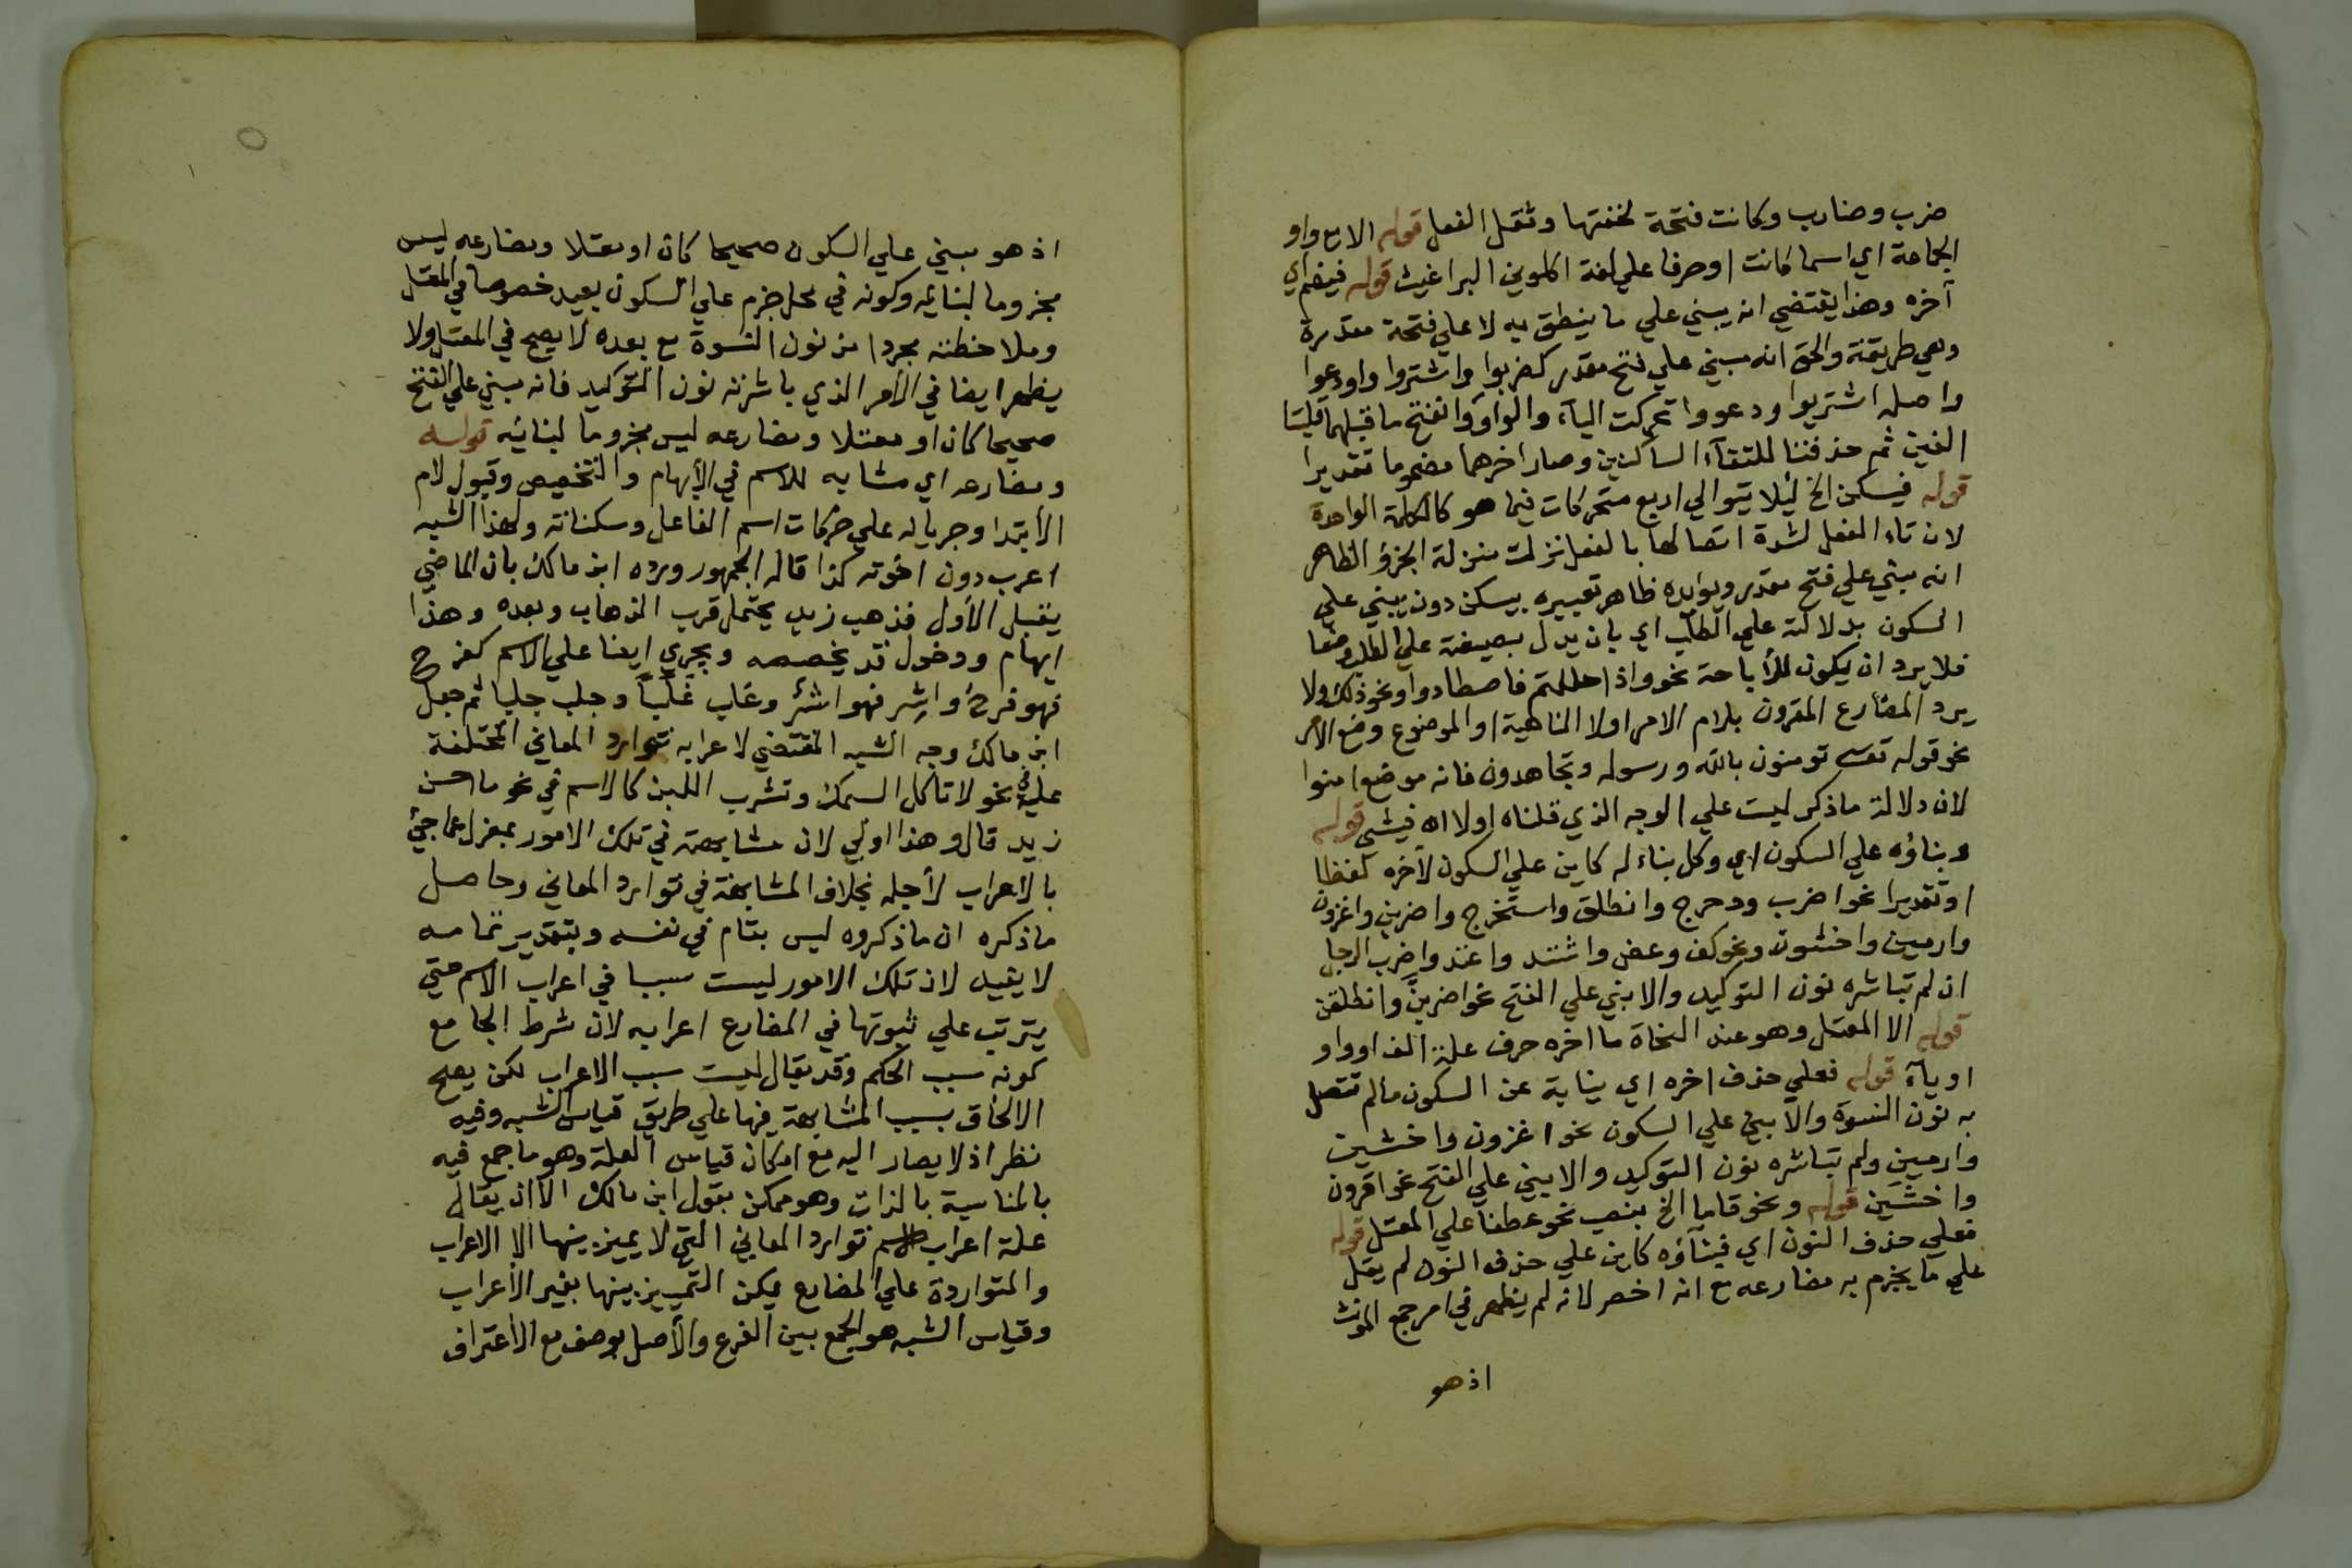 ضرب وضارب وكانت فتحة لخفتها وثقل الفعل قوله الا مع واو
الجماعة اي اسما كانت او حرفا علي لغة اكلوني البراغيث قوله فيضم اي
آخره وهذا يقتضي انه يبني علي ما ينطق به لا علي فتحة مقدرة
وهي طريقة والحق انه مبني علي فتح مقدر كضربوا واشتروا وادعوا
واصله اشتريوا ودعووا تحركت الياء والواو وانفتح ما قبلهما قلبتا
الفين ثم حذفتا للتقآء الساكنين وصار اخرهما مضموما تقديرا
قوله فيسكن الخ لئلا يتوالي اربع متحركات فيما هو كالكلمة الواحدة
لان تاء الفعل لشدة اتصالها بالفعل نزلت منزلة الجزؤ الظاهر
انه مبني علي فتح مقدر ويوايده ظاهر تعبيره بيسكن دون يبني علي
السكون بدلالته علي الطلب اي بان يدل بصيغته علي الطلب وضعا
فلا يرد ان يكون للأباحة نحو واذا حللتم فاصطادوا ونحو ذلك ولا
يرد المضارع المقرون بلام الامر او لا الناهية او الموضوع وضع الأمر
نحو قوله تعـ تومنون بالله ورسوله وتجاهدون فانه موضع امنوا
لان دلالة ماذكر ليست علي الوجه الذي قلناه اولا اه فيشى قوله
وبناؤه علي السكون اي وكل بناء له كاين علي السكون لأخره لفظا
او تقديرا نحو اضرب ودحرج وانطلق واستخرج واضربن واغزون
وارمين واخشون ونحو كف وعض واشتد واعتد واضرب الرجل
ان لم تباشره نون التوكيد والا بني علي الفتح نحو اضربنّ وانطلقن
قوله الا المعتل وهو عند النحاة ما اخره حرف علة الف او واو
او ياء قوله فعلي حذف اخره اي نيابة عن السكون مالم تتصل
به نون النسوة والا بني علي السكون نحو اغزون واخشين
وارمين ولم تباشره نون التوكيد والا يبني علي الفتح نحو اغزون
واخشين قوله ونحو قاما الخ بنصب نحو عطفا علي المعتل قوله
فعلي حذف النون اي فبنآؤه كاين علي حذف النون لم يقل
علي ما يجزم به مضارعه مع انه اخصر لانه لم يظهر في امر جمع المونث
اذ هو
اذ هو مبني علي السكون صحيحا كان او معتلا ومضارعه ليس
مجزوما لبنائه وكونه في محل جزم علي السكون بعيد خصوصا في المعتل
وملاحظته مجردا من نون النسوة مع بعده لا يصح في المعتل ولا
يظهر ايضا في الأمر الذي باشرته نون التوكيد فانه مبني علي الفتح
صحيحا كان او معتلا ومضارعه ليس مجزوما لبنائه قوله
ومضارعـ اي مشابه للاسم في الأبهام والتخصيص وقبول لام
الأبتدا وجريانه علي حركات اسم الفاعل وسكناته ولهذا الشبه
اعرب دون اخوته كذا قاله الجمهور ورده ابن مالك بان الماضي
يقبل الأول فذهب زيد يحتمل قرب الذهاب وبعده وهذا
ابهام ودخول قد يخصصه ويجري ايضا علي الاسم كفرح
فهو فرحٌ واشر فهو اشرٌ وغلب غلبًا وجلب جلبا ثم جعل
ابن مالك وجه الشبه المقتضي لاعرابه توارد المعاني المختلفة
عليه في نحو لا تأكل السمك وتشرب اللبن كالاسم في نحو ما احسن
زيد قال وهذا اولي لان مشابهته في تلك الامور بمعزل عما جئ
بالأعراب لأجله بخلاف المشابهة في توارد المعاني وحاصل
ماذكره ان ماذكروه ليس بتام في نفسه وبتقدير تمامه
لا يفيد لان تلك الامور ليست سببا في اعراب الاسم حتي
يترتب علي ثبوتها في المضارع اعرابه لان شرط الجامع
كونه سبب الحكم وقد يقال ليست سبب الاعراب لكن يصح
الالحاق بسبب المشابهة فيها علي طريق قياس الشبه وفيه
نظر اذ لا يصار اليه مع امكان قياس العلة وهو ما جمع فيه
بالمناسبة بالذات وهو ممكن بقول ابن مالك الا ان يقال
علة اعراب الاسم توارد المعاني التي لا يميز بينها الا الاعراب
والمتواردة علي المضارع يمكن التمييز بينها بغير الأعراب
وقياس الشبه هو الجمع بين الفرع والأصل بوصف مع الأعتراف